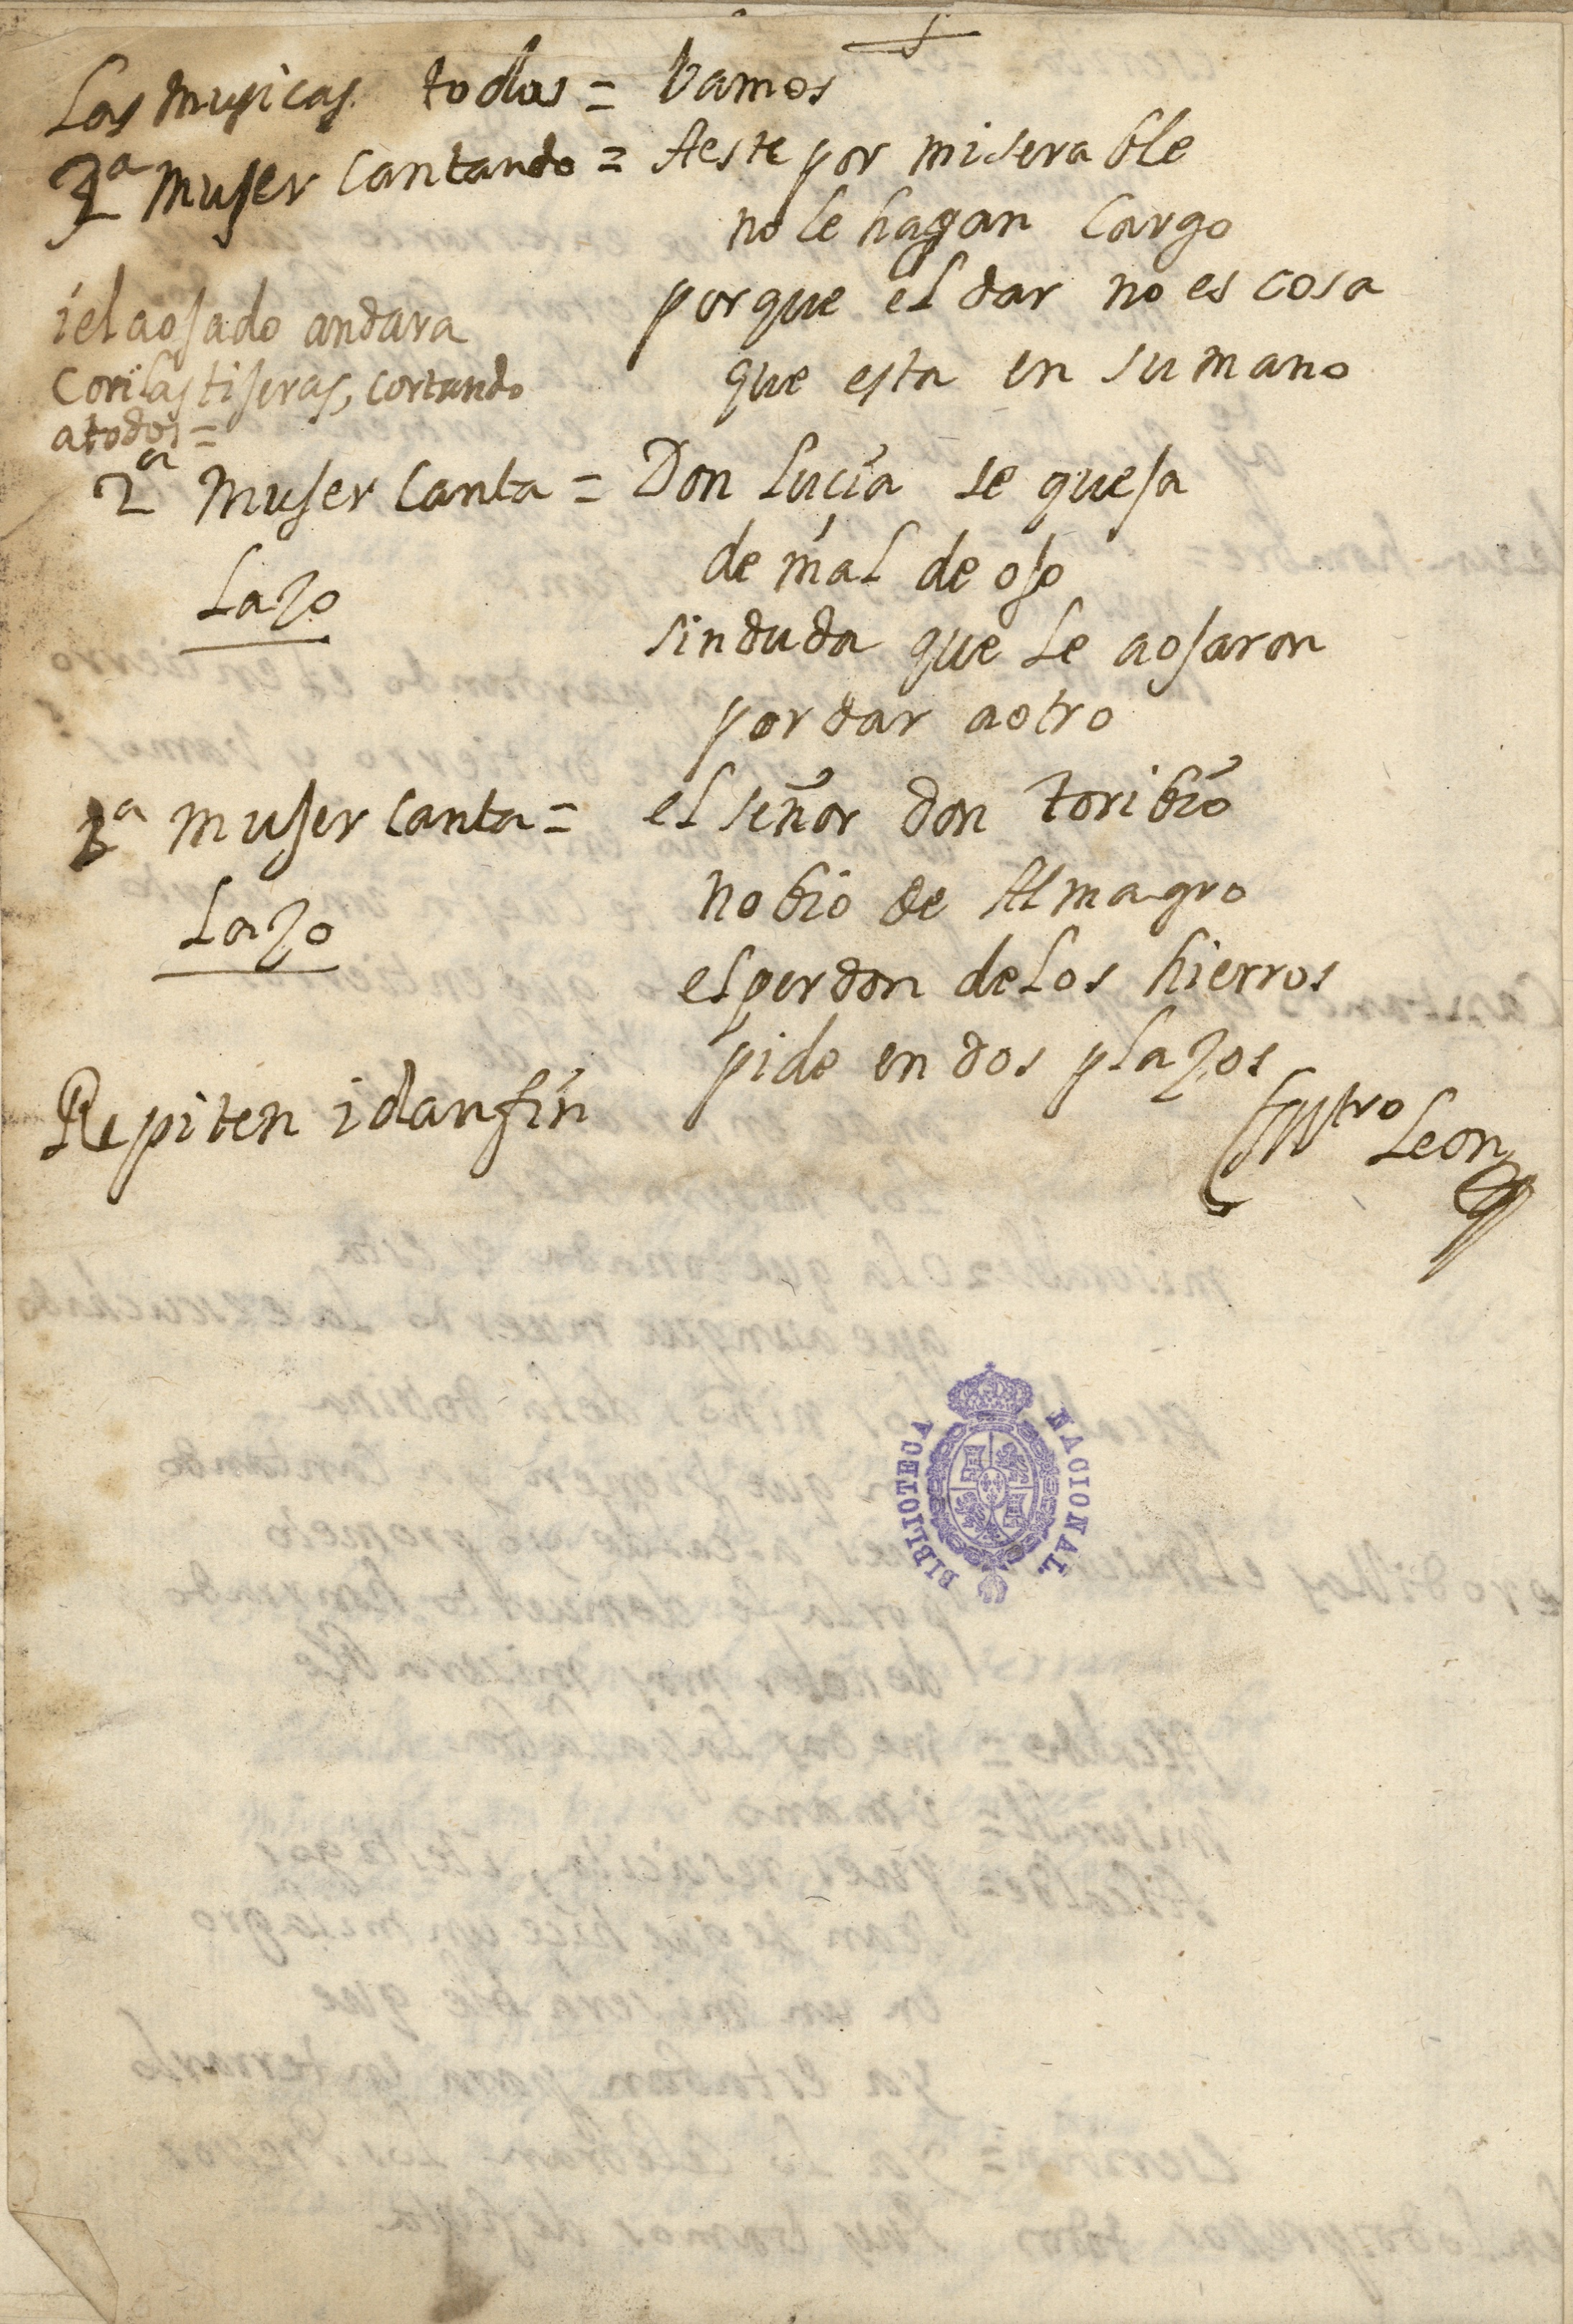 Las musicas todos = Vamos
1ª muger cantando = A este por miserable
no le hagan cargo
porque el dar no es cosa
que esta en su mano
i el aojado andara
con las tijeras, cortando
a todos =
2ª muger canta = Don Lucia se queja
de mal de ojo
Lazo
sin duda que le aojaron
por dar a otro
3ª muger canta = el señor don toribio
nobio de Almagro
Lazo
el perdon de los hierros
pide en dos plazos
Repiten i dan fin
Leon
BIBLIOTECA NACIONAL